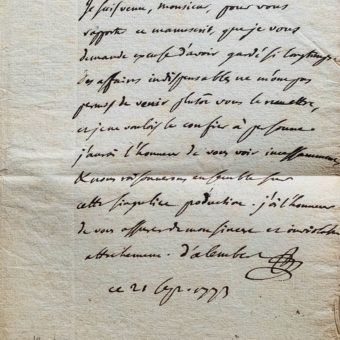 Je suis venu, monsieur, pour vous
rapporter ce manuscrit, que je vous
demande excuse d'avoir gardé si longtemps
des affaires indispensables ne m'ont pas
permis de venir plutôt vous le remettre,
et je ne voulois le confier à personne
j'aurai l'honneur de vous voir incessamment,
& nous raisonnerons ensemble sur
cette singuliere production. j'ai l'honneur
de vous assurer de mon sincere et inviolable
attachement. d'alembert
ce 21 sept. 1773